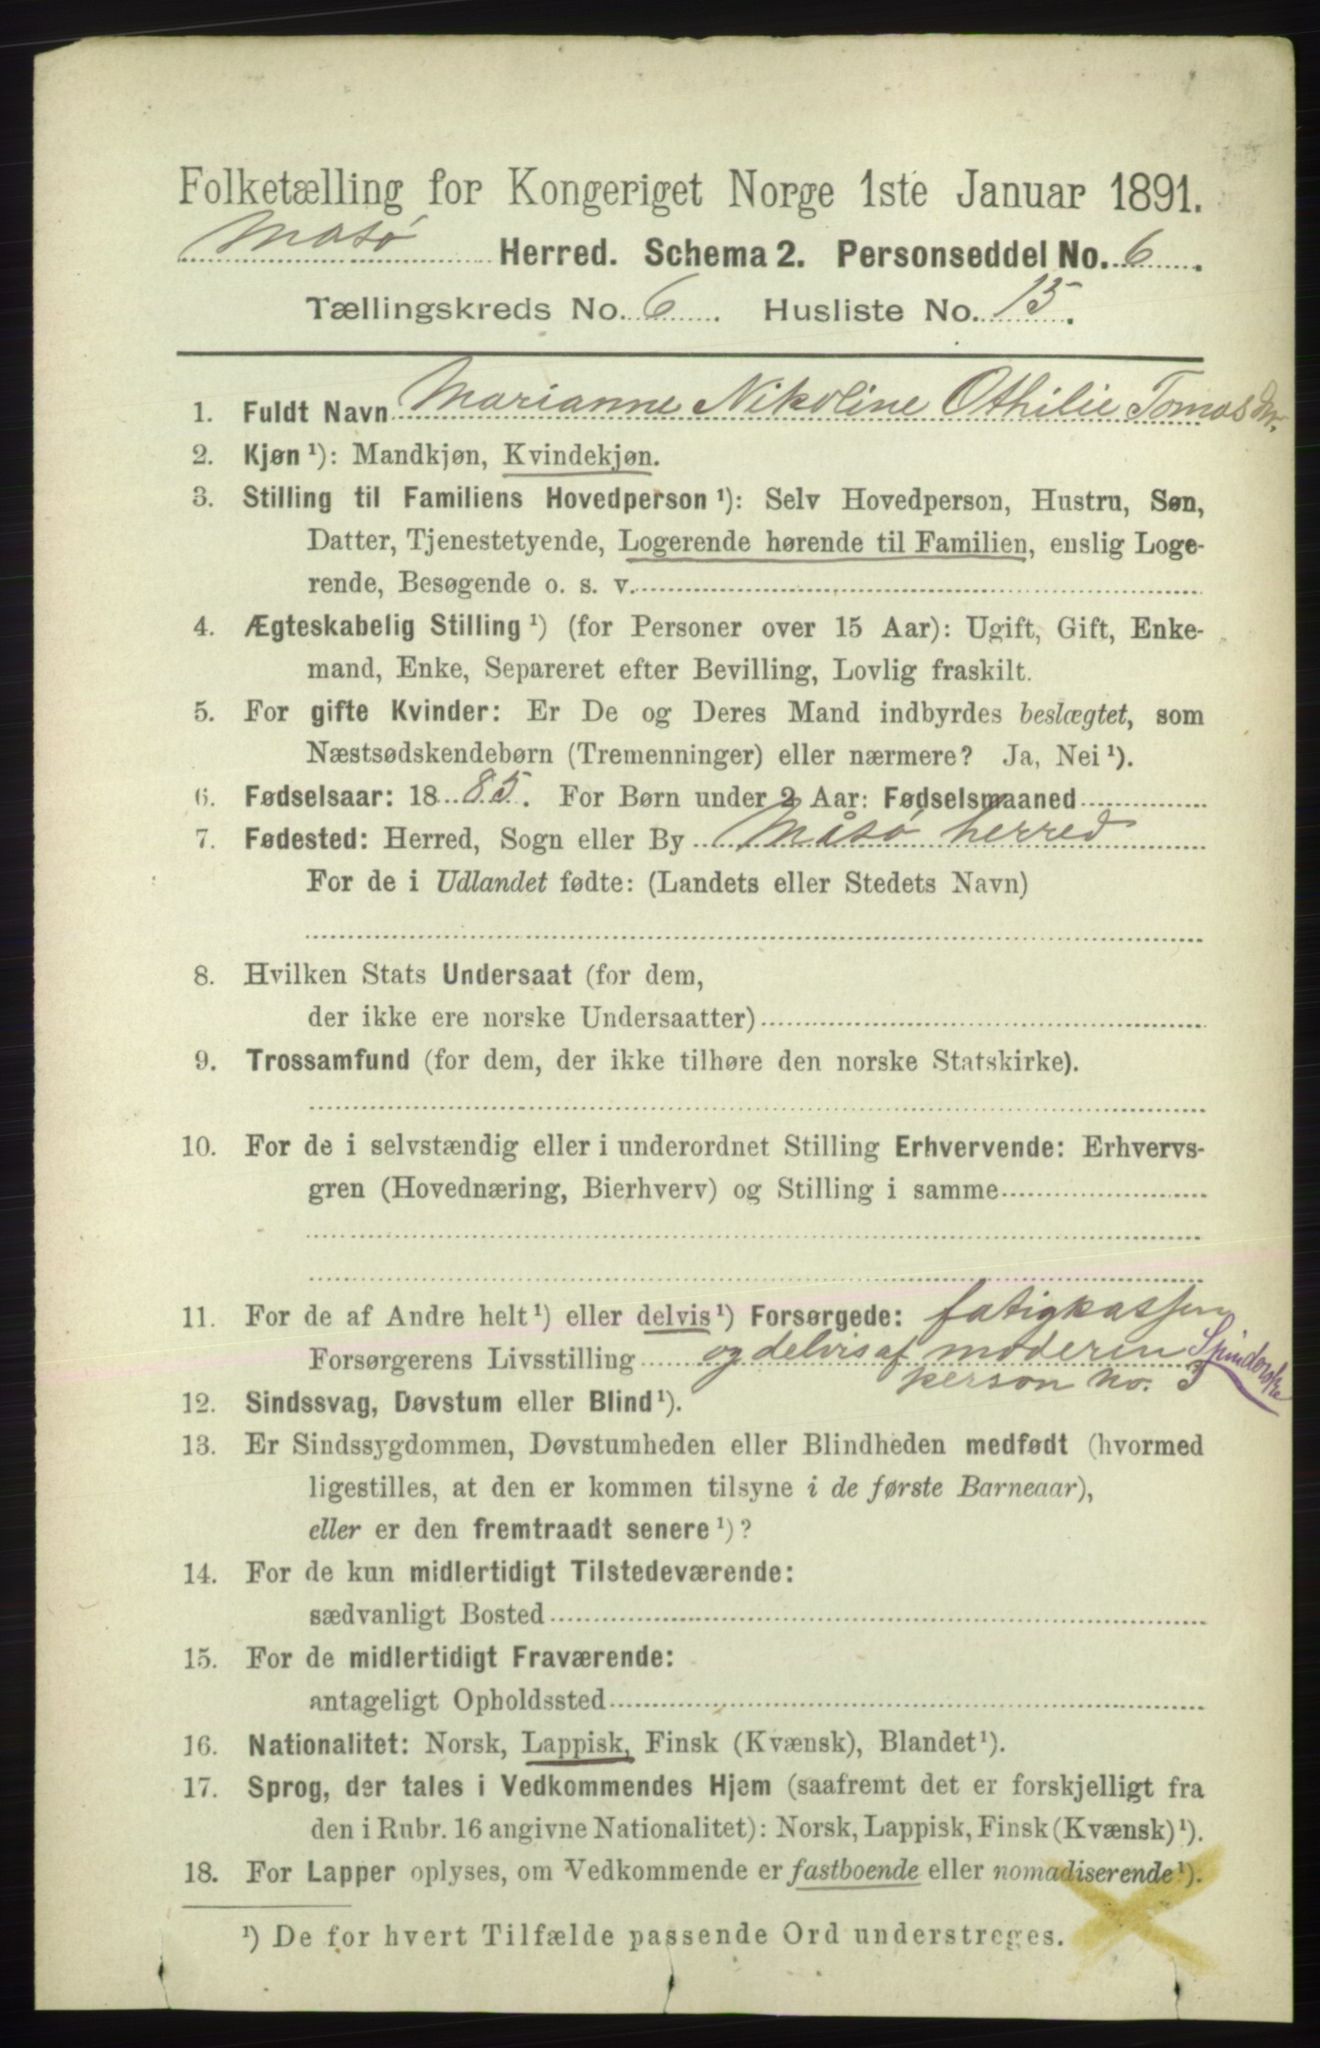 Folketælling for Kongeriget Norge 1ste Januar 1891.
Masø Herred. Schema 2. Personseddel No. 6.
Tællingskreds No. 6. Husliste No. 15.
1. Fuldt Navn Marianne Nikoline Othilie Tomasdtr.
2. Kjøn ¹): Mandkjøn, Kvindekjøn.
3. Stilling til Familiens Hovedperson ¹): Selv Hovedperson, Hustru, Søn,
Datter, Tjenestetyende, Logerende hørende til Familien, enslig Loge-
rende, Besøgende o. s. v.
4. Ægteskabelig Stilling ¹) (for Personer over 15 Aar): Ugift, Gift, Enke-
mand, Enke, Separeret efter Bevilling, Lovlig fraskilt.
5. For gifte Kvinder: Er De og Deres Mand indbyrdes beslægtet, som
Næstsødskendebørn (Tremenninger) eller nærmere? Ja, Nei ¹).
6. Fødselsaar: 1885. For Børn under 2 Aar: Fødselsmaaned
7. Fødested: Herred, Sogn eller By Måsø herred
For de i Udlandet fødte: (Landets eller Stedets Navn)
8. Hvilken Stats Undersaat (for dem,
der ikke ere norske Undersaatter)
9. Trossamfund (for dem, der ikke tilhøre den norske Statskirke).
10. For de i selvstændig eller i underordnet Stilling Erhvervende: Erhvervs-
gren (Hovednæring, Bierhverv) og Stilling i samme
11. For de af Andre helt ¹) eller delvis ¹) Forsørgede: fatigkassen
Forsørgerens Livsstilling og delvis af moderen Spinderske
person no. 3
12. Sindssvag, Døvstum eller Blind ¹).
13. Er Sindssygdommen, Døvstumheden eller Blindheden medfødt (hvormed
ligestilles, at den er kommen tilsyne i de første Barneaar),
eller er den fremtraadt senere ¹)?
14. For de kun midlertidigt Tilstedeværende:
sædvanligt Bosted
15. For de midlertidigt Fraværende:
antageligt Opholdssted
16. Nationalitet: Norsk, Lappisk, Finsk (Kvænsk), Blandet ¹).
17. Sprog, der tales i Vedkommendes Hjem (saafremt det er forskjelligt fra
den i Rubr. 16 angivne Nationalitet): Norsk, Lappisk, Finsk (Kvænsk) ¹).
18. For Lapper oplyses, om Vedkommende er fastboende eller nomadiserende ¹).
¹) De for hvert Tilfælde passende Ord understreges.